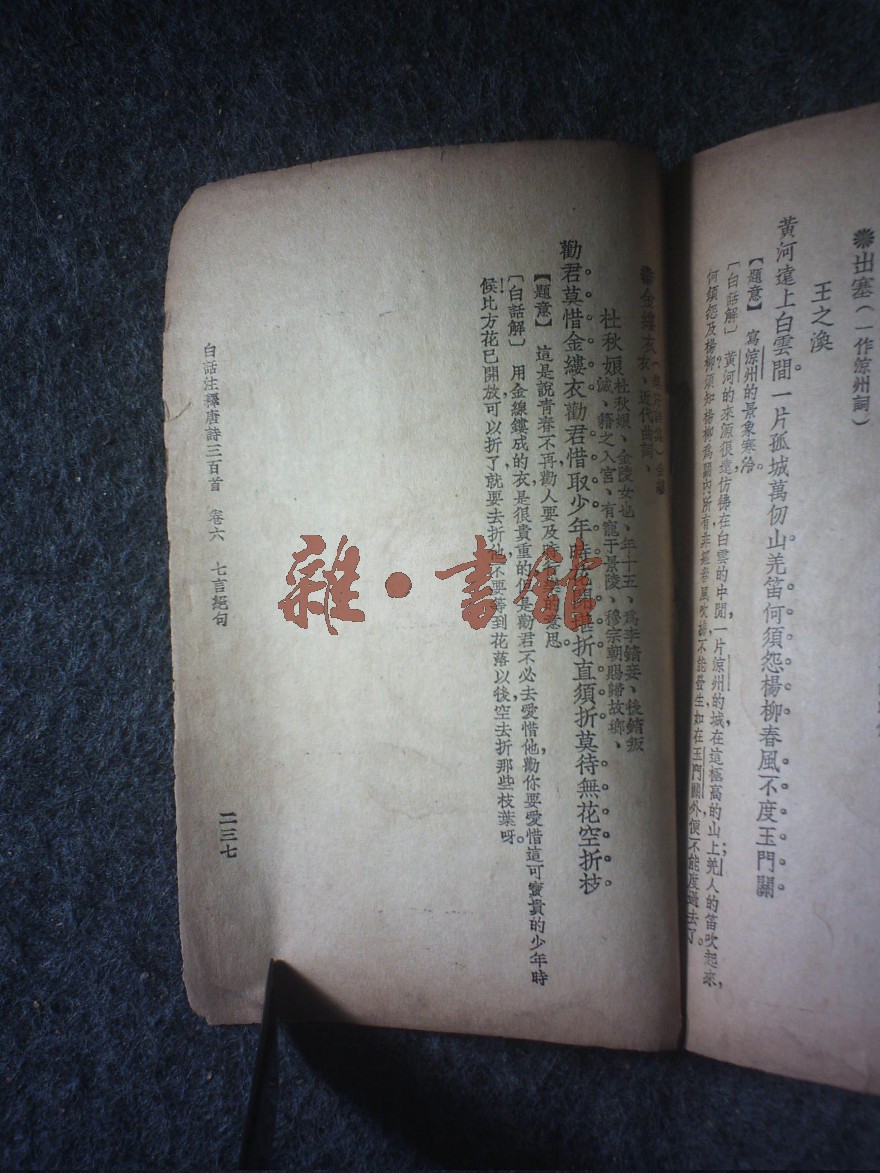 出塞(一作涼州詞)
王之渙
黃河遠上白雲間一片孤城萬仞山羌笛何須怨楊柳春風不度玉門關
【題意】寫涼州的景象寒冷。
〔白話解〕黃河的來源很遠,彷彿在白雲的中間一片涼州的城在這極高的山上;羌人的笛吹起來,
何須怨及楊柳?須知楊柳為關內所有非經春風吹拂不能發生如在玉門關外便不能度過去了。
金縷衣
衣、近代曲詞、
杜秋娘 杜秋娘、金陵女也、年十五、為李錡妾、後錡叛
滅、籍之入宮、有寵于景陵、穆宗朝賜歸故鄉、
勸君莫惜金縷衣勸君惜取少年時花開堪折直須折莫待無花空折枝
【題意】這是說青春不再勸人要及時的意思
〔白話解〕用金線鏤成的衣是很貴重的但是勸君不必去愛惜他,勸你要愛惜這可寶貴的少年時
候!比方花已開放,可以折了,就要去折他不要等到花落以後空去折那些枝葉呀。
白話注釋唐詩三百首 卷六 七言絕句
二三七
雜·書館